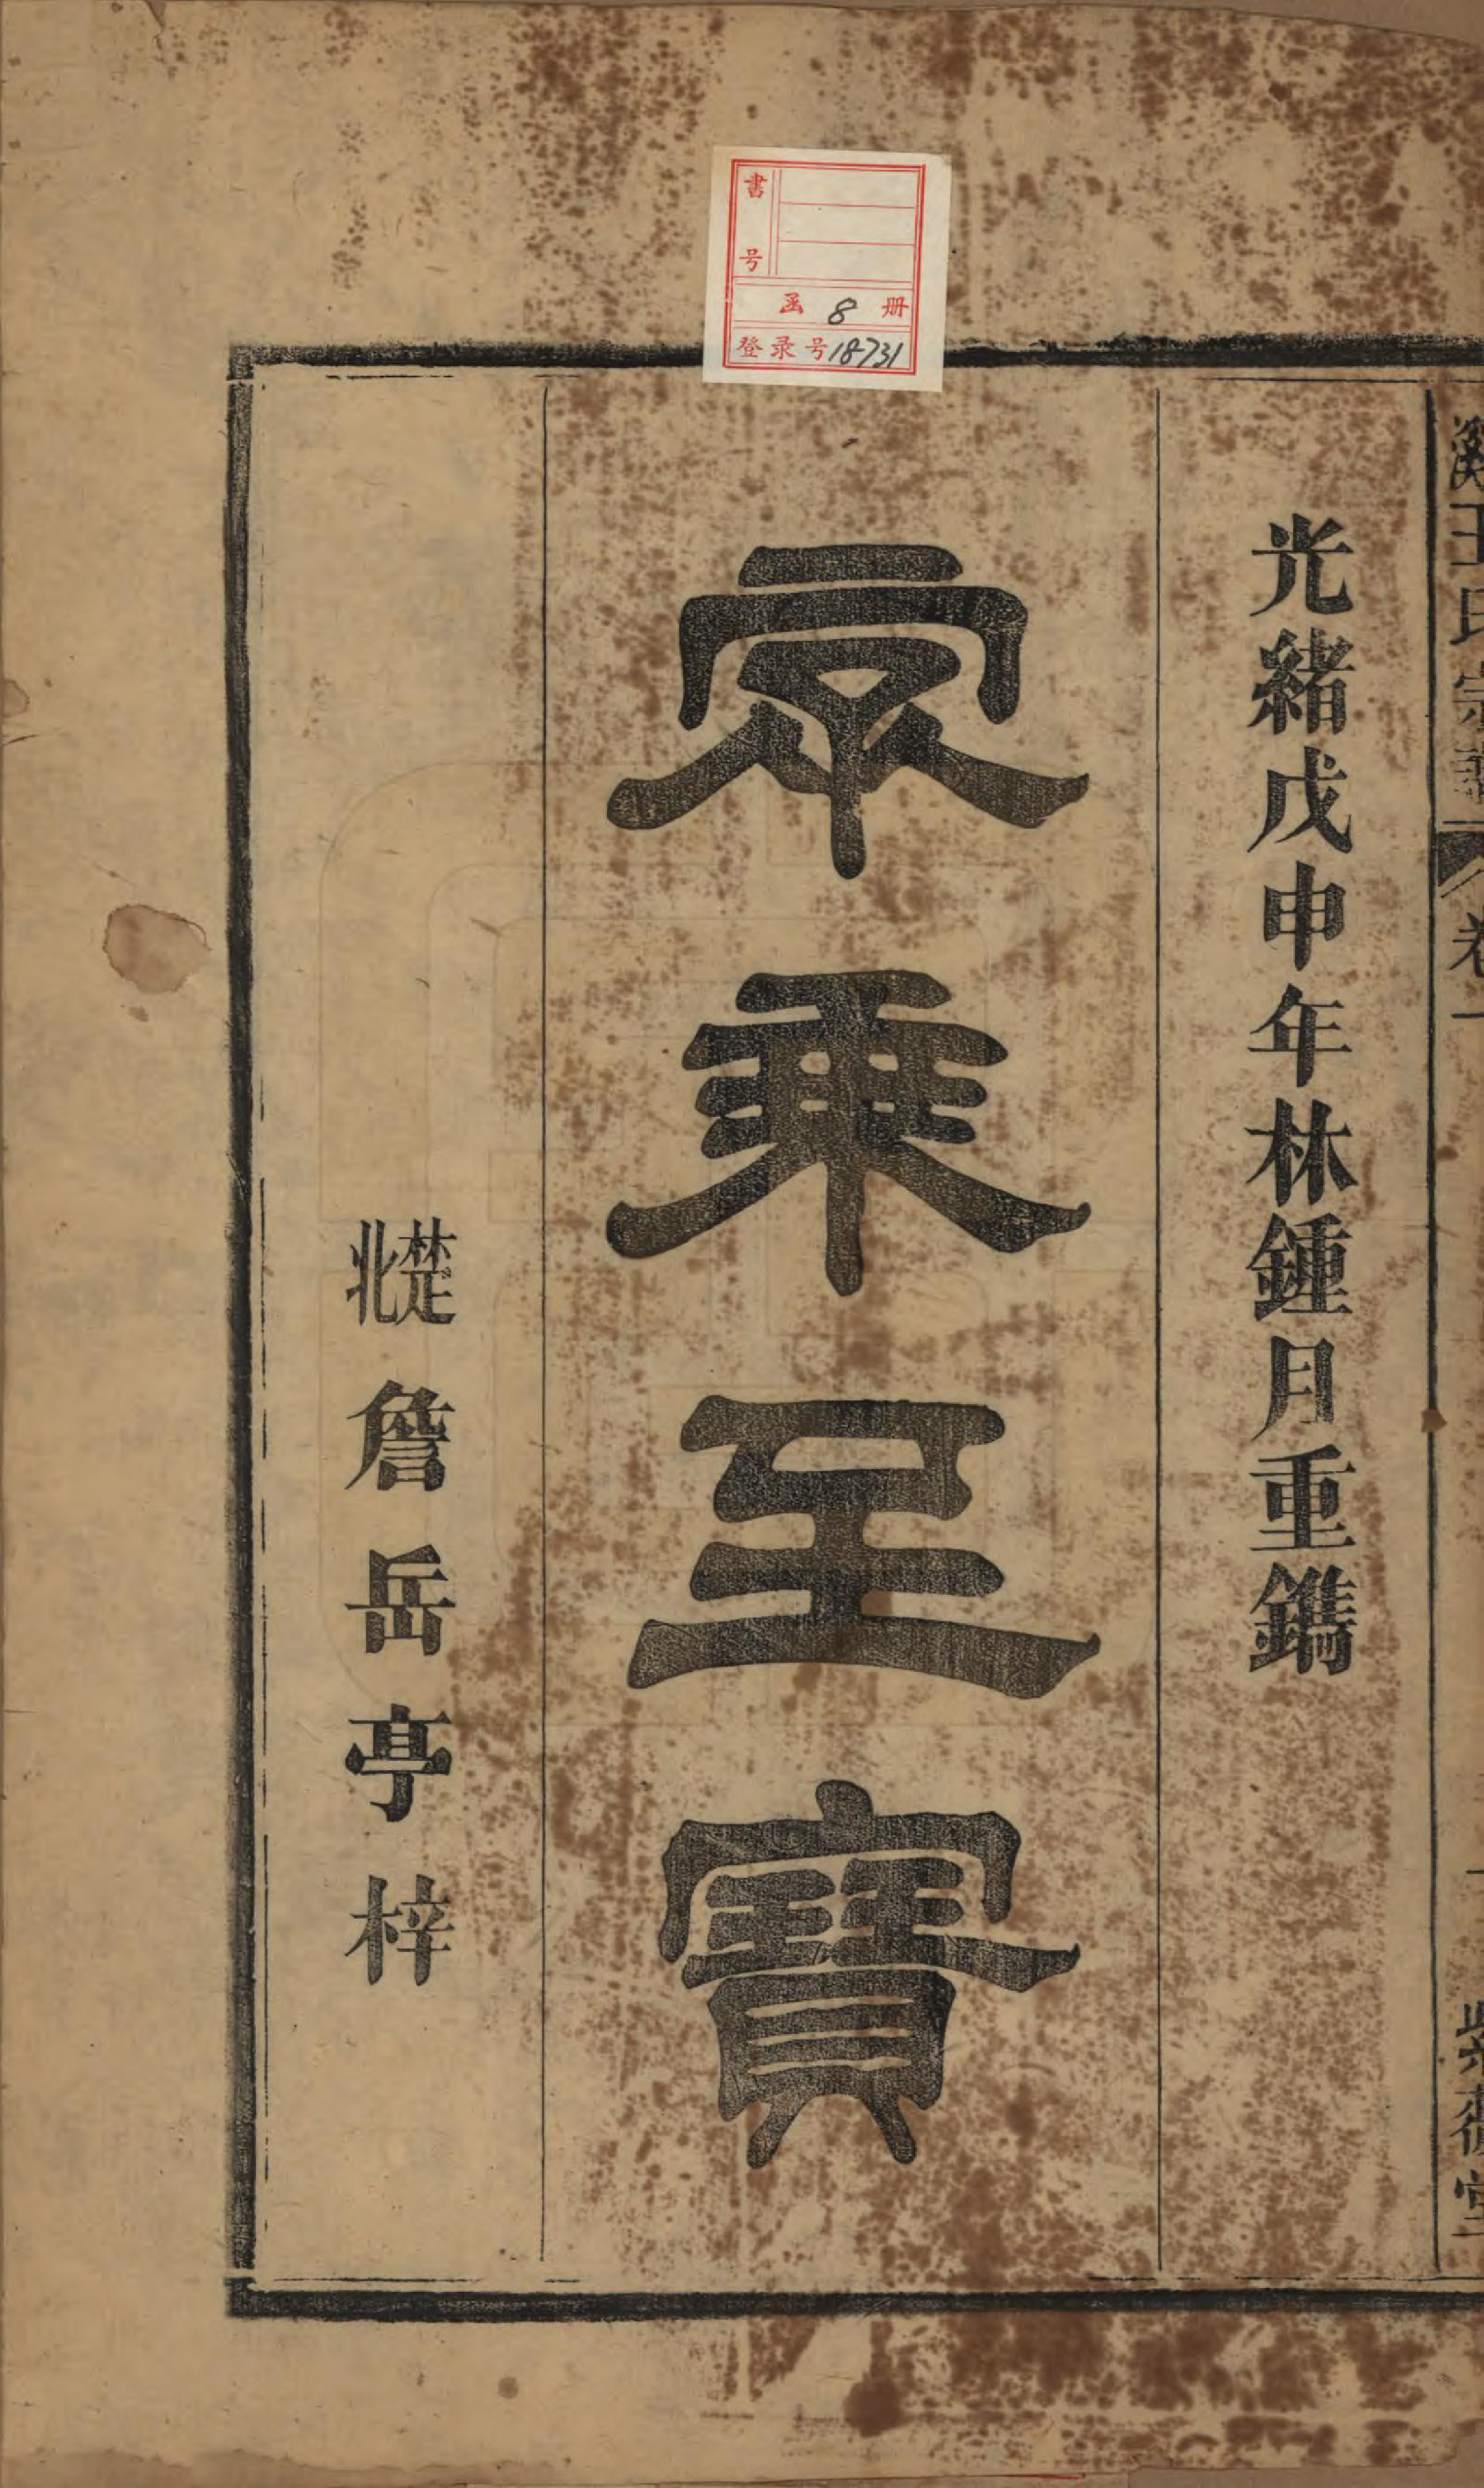 書号
函 8 册
登录号18731
王氏宗譜 卷一 一 紫薇堂
光緒戊申年林鍾月重鐫
家乘至寶
楚北詹岳亭梓